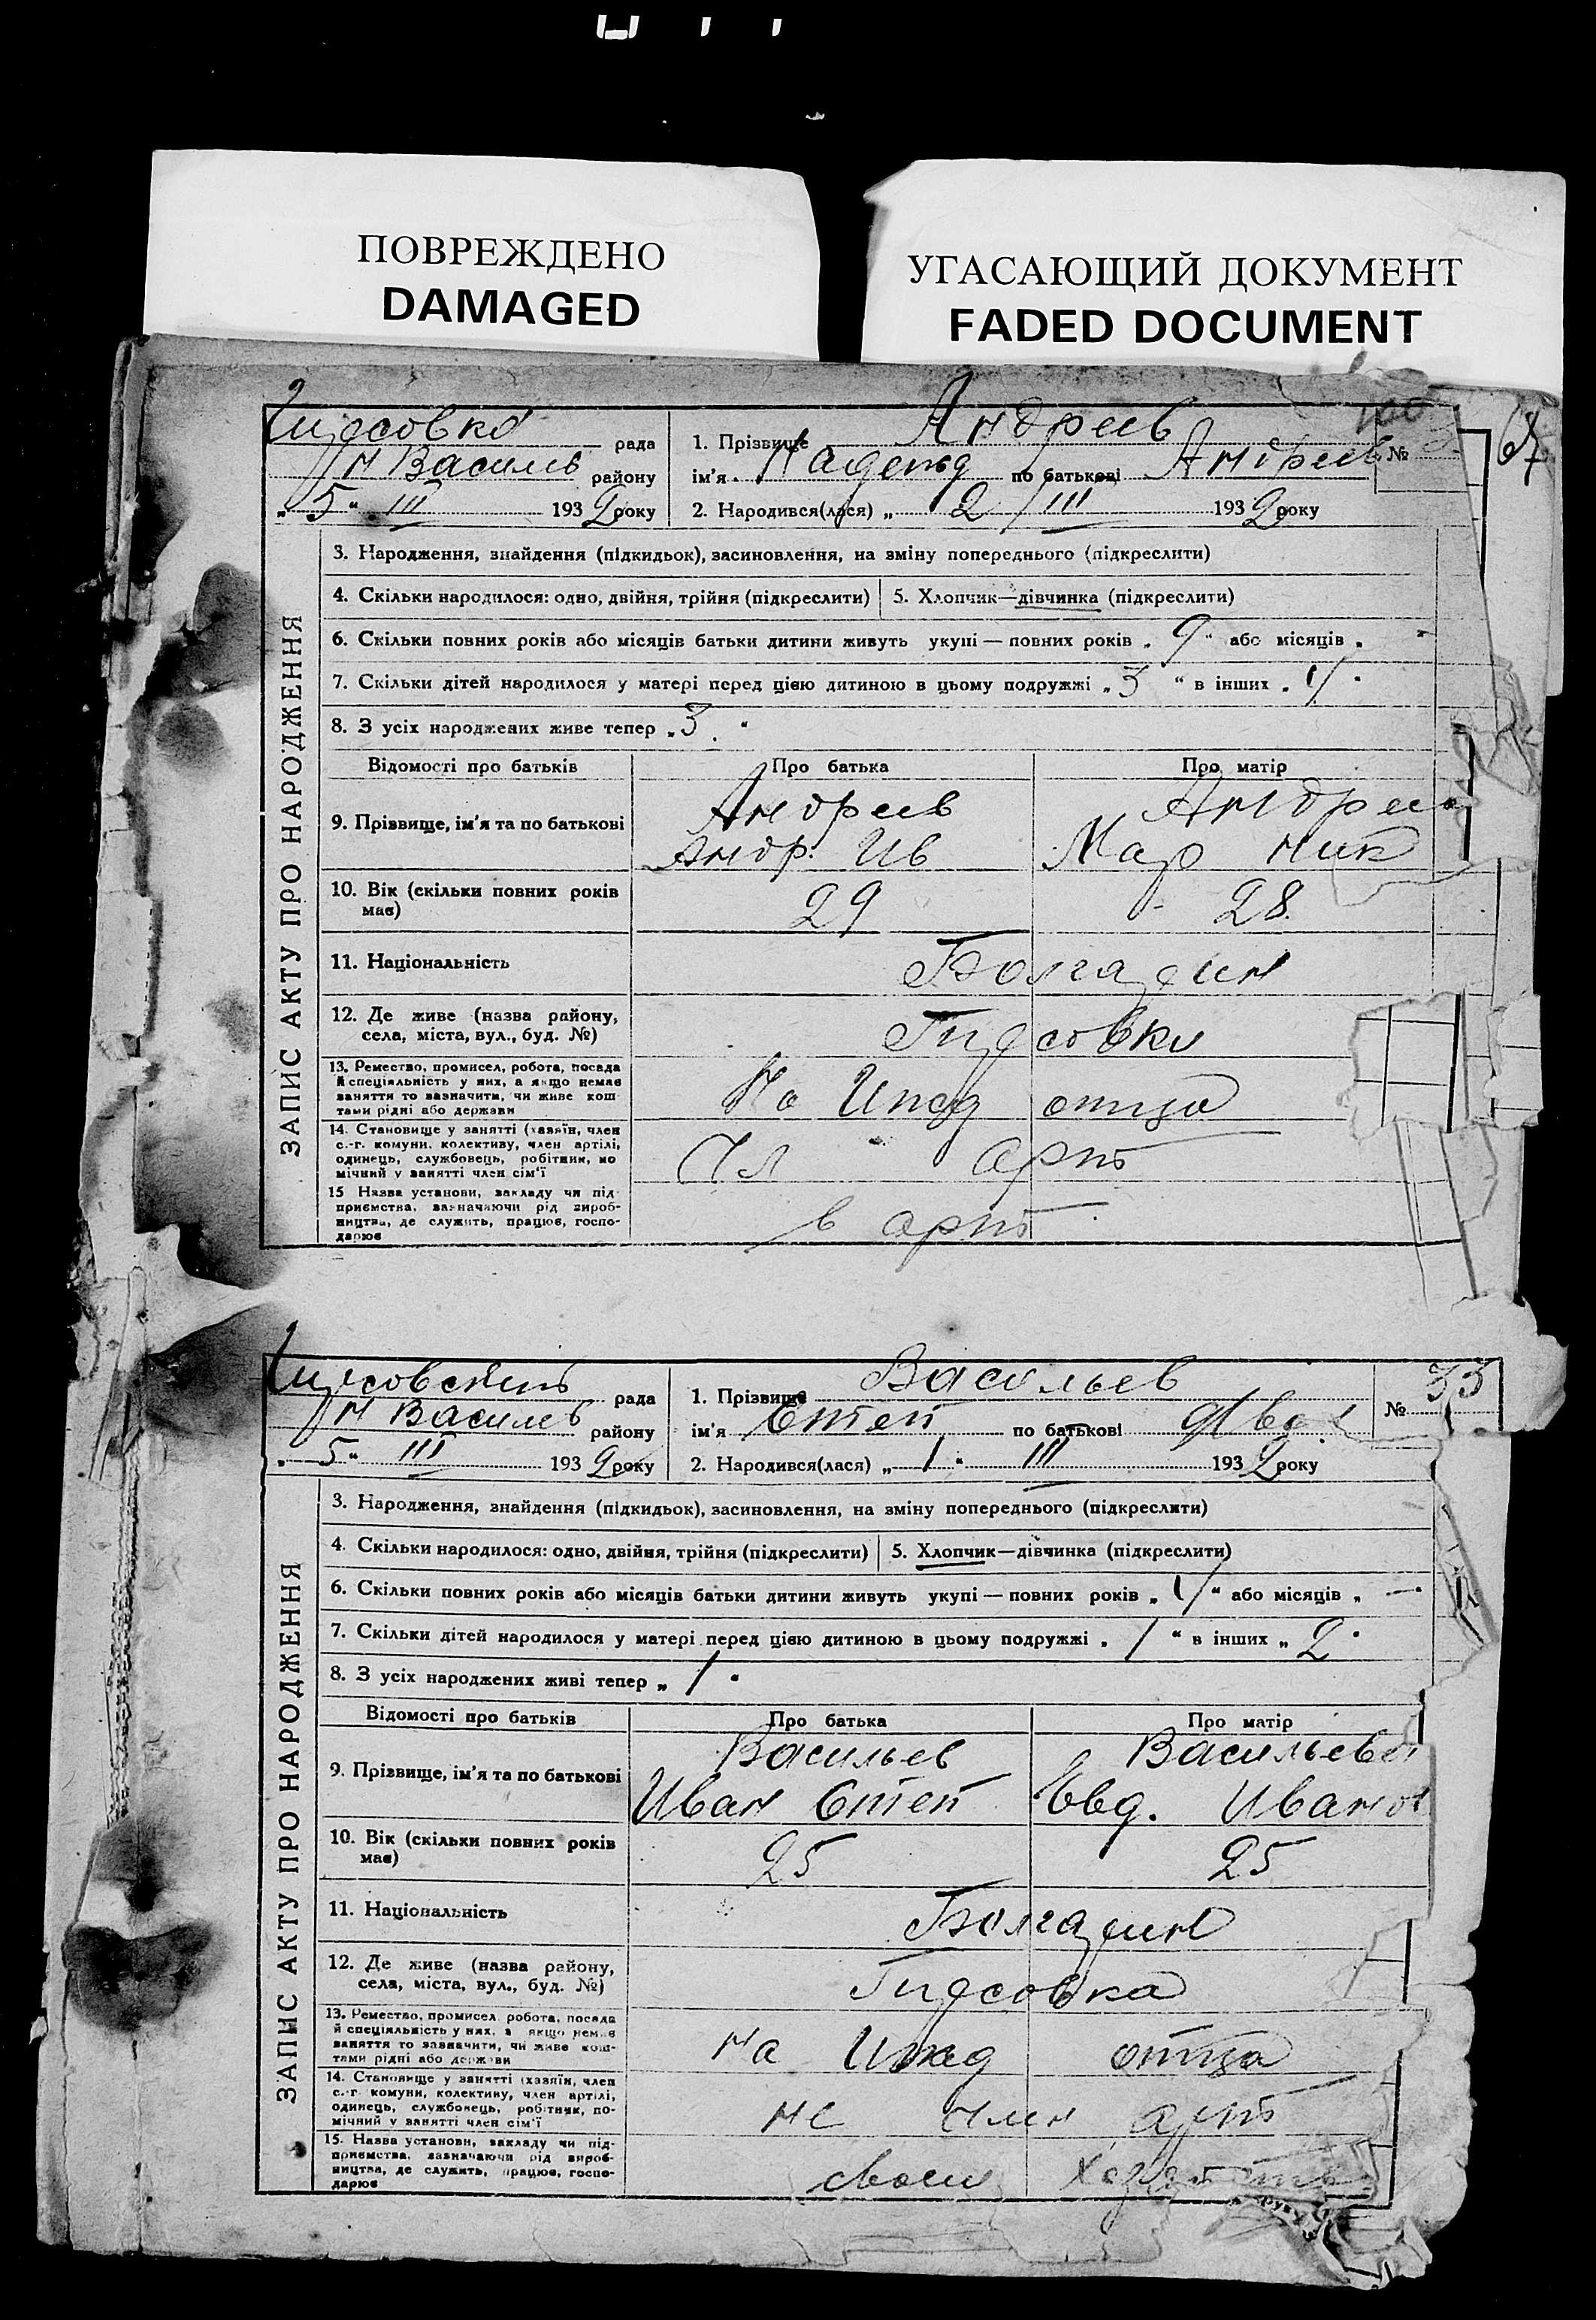 ПОВРЕЖДЕНО
DAMAGED
УГАСАЮЩИЙ ДОКУМЕНТ
FADED DOCUMENT
67
рада
Н Василь району
„ 5 " III 1932 року
1. Прізвище Андреев
ім'я Надежд по батькові Андреев №
2. Народився(лася) „ 2 / III 1932 року
ЗАПИС АКТУ ПРО НАРОДЖЕННЯ
3. Народження, знайдення (підкидьок), засиновлення, на зміну попереднього (підкреслити)
4. Скільки народилося: одно, двійня, трійня (підкреслити) 5. Хлопчик—дівчинка (підкреслити)
6. Скільки повних років або місяців батьки дитини живуть укупі — повних років „ 9 " або місяців „ "
7. Скільки дітей народилося у матері перед цією дитиною в цьому подружжі „ 3 " в інших „
8. З усіх народжених живе тепер „ 3 "
Відомості про батьків Про батька Про матір
9. Прізвище, ім'я та по батькові
Андреев Андреев
Андр. Ив Мар Ник
10. Вік (скільки повних років має) 29 28
11. Національність Болгарин
12. Де живе (назва району, села, міста, вул., буд. №)
13. Ремество, промисел, робота, посада й спеціяльність у них, а якщо немає заняття то зазначити, чи живе коштами рідні або держави
На Ижд отца
14. Становище у занятті (хазяїн, член с.-г. комуни, колективу, член артілі, одинець, службовець, робітник, помічний у занятті член сім'ї
Чл арт
15. Назва установи, закладу чи підприємства, зазначаючи рід виробництва, де служить, працює, господарює
в арт
рада
Н Василев району
„ 5 " III 1932 року
1. Прізвище Васильев
ім'я Степ по батькові Иван № 33
2. Народився(лася) „ 1 " III 1932 року
ЗАПИС АКТУ ПРО НАРОДЖЕННЯ
3. Народження, знайдення (підкидьок), засиновлення, на зміну попереднього (підкреслити)
4. Скільки народилося: одно, двійня, трійня (підкреслити) 5. Хлопчик—дівчинка (підкреслити)
6. Скільки повних років або місяців батьки дитини живуть укупі — повних років „ " або місяців „ — "
7. Скільки дітей народилося у матері перед цією дитиною в цьому подружжі „ 1 " в інших „ 2 "
8. З усіх народжених живі тепер „ 1 "
Відомості про батьків Про батька Про матір
9. Прізвище, ім'я та по батькові
Васильев Васильева
Иван Степ Евд. Иванов
10. Вік (скільки повних років має) 25 25
11. Національність Болгарин
12. Де живе (назва району, села, міста, вул., буд. №)
13. Ремество, промисел, робота, посада й спеціяльність у них, а якщо немає заняття то зазначити, чи живе коштами рідні або держави
на Ижд отца
14. Становище у занятті (хазяїн, член с.-г. комуни, колективу, член артілі, одинець, службовець, робітник, помічний у занятті член сім'ї
не член арт
15. Назва установи, закладу чи підприємства, зазначаючи рід виробництва, де служить, працює, господарює